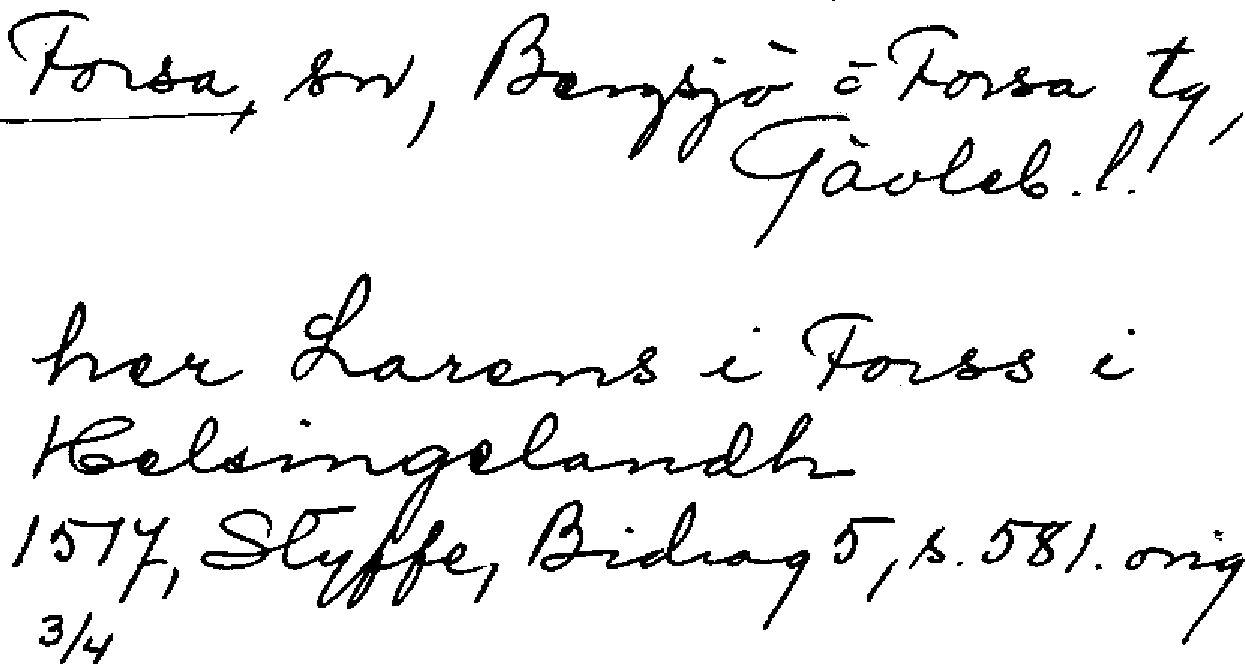 Forsa, sn, Bergsjö o Forsa tg,
Gävleb. l.
her Larens i Forss i
Helsingelandh
1517, Styffe, Bidrag 5, s. 581. orig
3/4